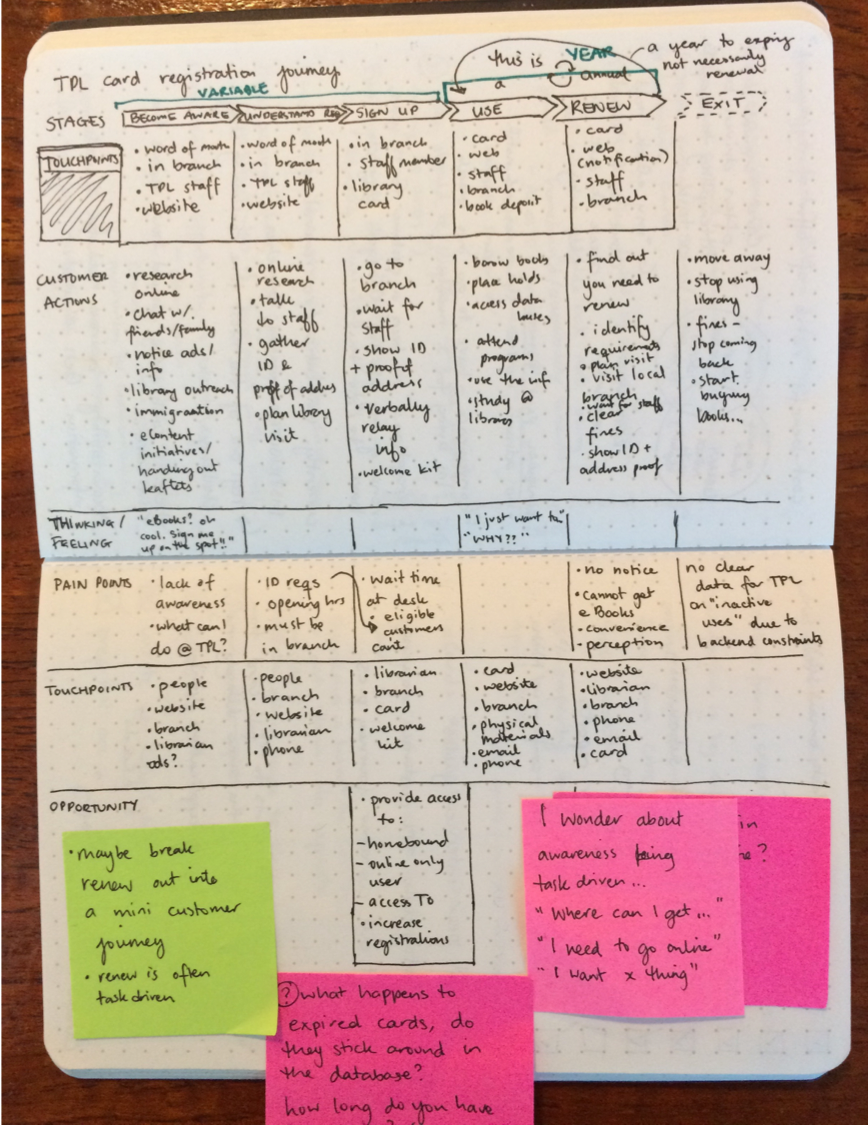 TPL card registration journey
VARIABLE
this is
a
YEAR
annual
a year to expiry
not necessarily
renewal
STAGES
BECOME AWARE
UNDERSTAND REQ
SIGN UP
USE
RENEW
EXIT
TOUCHPOINTS
• word of mouth
• in branch
• TPL staff
• website
• word of mouth
• in branch
• TPL staff
• website
• in branch
• staff member
• library
card
• card
• web
• staff
• branch
• book deposit
• card
• web
(notification)
• staff
• branch
CUSTOMER
ACTIONS
• research
online
• chat w/.
friends/family
• notice ads/
info
• library outreach
• immigration
• eContent
initiatives/
handing out
leaflets
• online
research
• talk
to staff
• gather
ID &
proof of address
• plan library
visit
• go to
branch
• wait for
staff
• show ID
+ proof of
address
• verbally
relay
info
• welcome kit
• borrow books
• place holds
• access data
bases
• attend
programs
• use the inf
• study @
libraries
• find out
you need to
renew
• identify
requirements
• plan visit
• visit local
branch
• wait for staff
• clear
fines
• show ID +
address proof
• move away
• stop using
library
• fines –
stop coming
back
• start
buying
books...
THINKING/
FEELING
"eBooks? oh
cool. Sign me
up on the spot!!"
"I just want to"
"WHY??"
PAIN POINTS
• lack of
awareness
• what can I
do @ TPL?
• ID reqs
• opening hrs
• must be
in branch
• wait time
at desk
• eligible
customers
can't
• no notice
• cannot get
eBooks
• convenience
• perception
no clear
data for TPL
on "inactive
uses" due to
backend constraints
TOUCHPOINTS
• people
• website
• branch
• librarian
ads?
• people
• branch
• website
• librarian
• phone
• librarian
• branch
• card
• welcome
kit
• card
• website
• branch
• physical
materials
• email
• phone
• website
• librarian
• branch
• phone
• email
• card
OPPORTUNITY
• provide access
to:
– homebound
– online only
user
– access TO
• increase
registrations
• maybe break
renew out into
a mini customer
journey
• renew is often
task driven
? what happens to
expired cards, do
they stick around in
the database?
how long do you have
I wonder about
awareness being
task driven...
"Where can I get..."
"I need to go online"
"I want x thing"
in
?